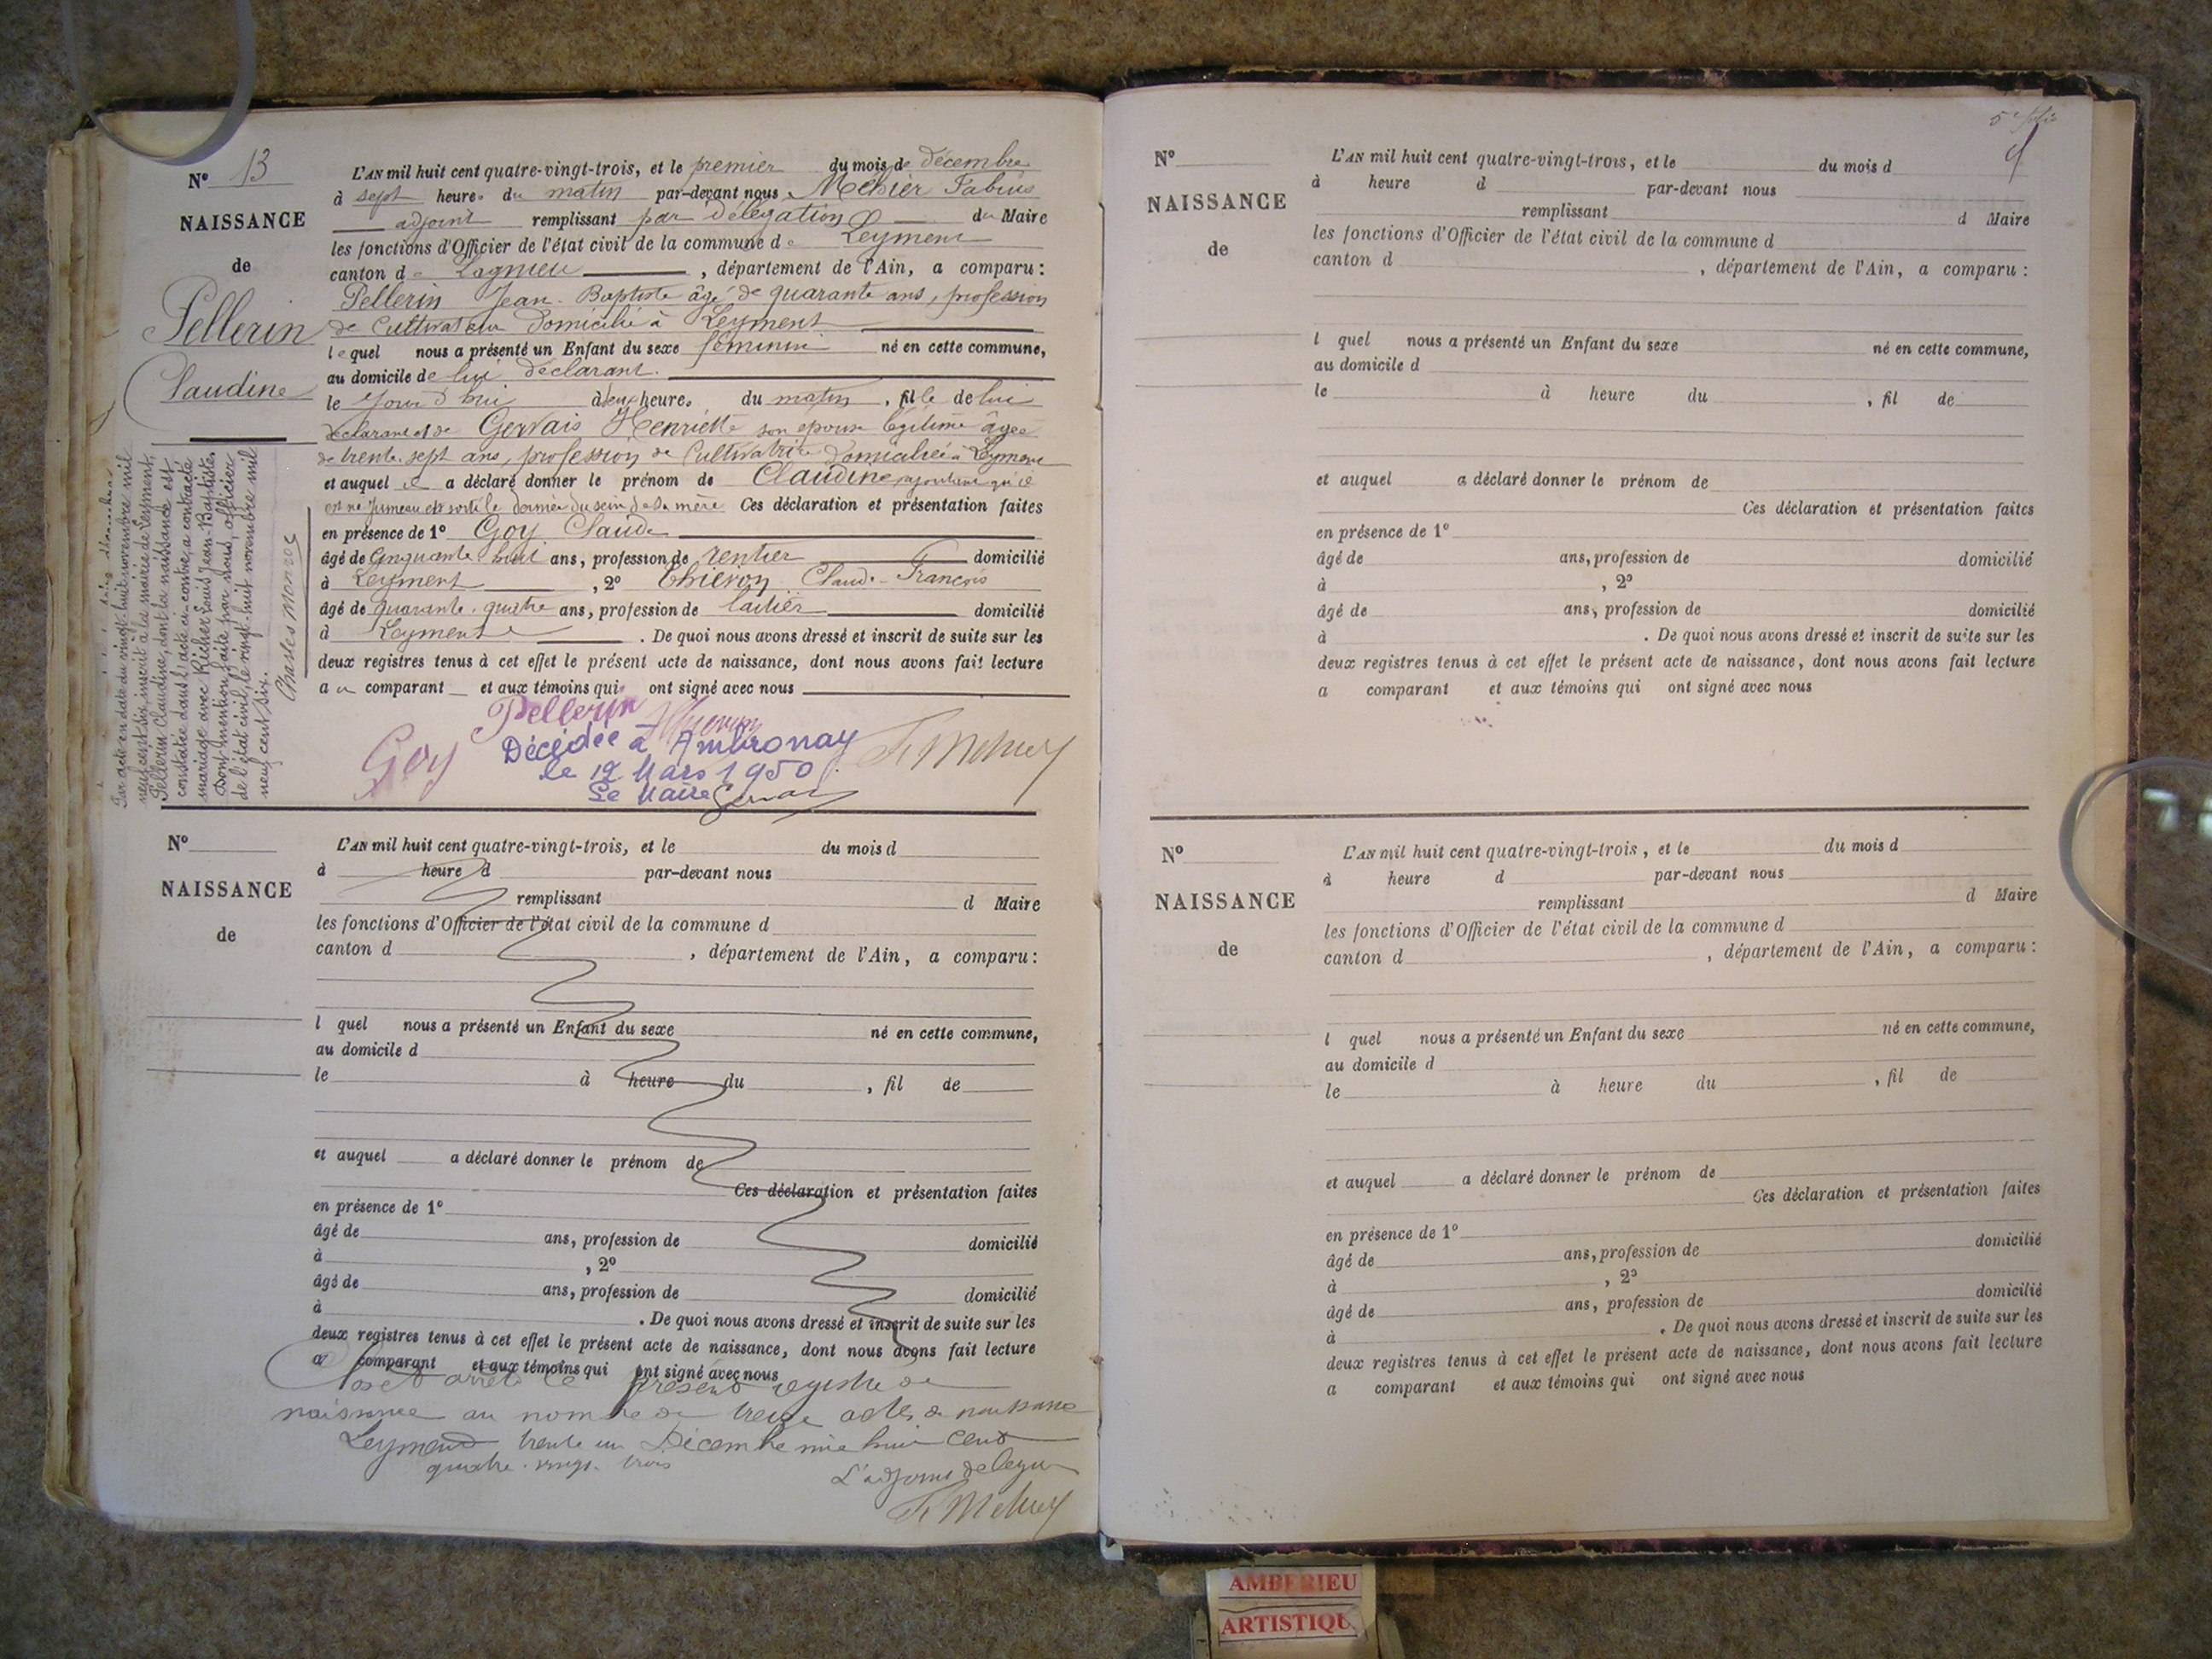 N° 13
NAISSANCE
de
Pellerin
Claudine
L'AN mil huit cent quatre-vingt-trois, et le premier du mois de décembre
à sept heures du matin par-devant nous Mehier Fabius
adjoint remplissant par délégation du Maire
les fonctions d'Officier de l'état civil de la commune de Leyment
canton de Lagnieu, département de l'Ain, a comparu :
Pellerin Jean-Baptiste âgé de quarante ans, profession
de Cultivateur domicilié à Leyment
lequel nous a présenté un Enfant du sexe féminin né en cette commune,
au domicile de lui déclarant.
le jour d'hui à deux heures du matin, fille de lui
déclarant et de Gervais Henriette son épouse légitime âgée
de trente-sept ans, profession de Cultivatrice domiciliée à Leyment
et auquel il a déclaré donner le prénom de Claudine ajoutant qu'il
est né jumeau est sorti le dernier du sein de sa mère Ces déclaration et présentation faites
en présence de 1° Goy Claude
âgé de Cinquante huit ans, profession de rentier domicilié
à Leyment, 2° Thiévon Claude-François
âgé de quarante-quatre ans, profession de laitier domicilié
à Leyment. De quoi nous avons dressé et inscrit de suite sur les
deux registres tenus à cet effet le présent acte de naissance, dont nous avons fait lecture
au comparant et aux témoins qui ont signé avec nous
Pellerin
Goy
F. Mehier
Décédée à Ambronay
le 12 Mars 1950
Le Maire
Par acte en date du vingt-huit novembre mil
neuf cent six, inscrit à la mairie de Leyment,
Pellerin Claudine, dont la naissance est
constatée dans l'acte ci-contre, a contracté
mariage avec Richerd Louis Jean-Baptiste.
Dont mention faite par nous, officier
de l'état civil, le vingt-huit novembre mil
neuf cent six.
N°
NAISSANCE
de
L'AN mil huit cent quatre-vingt-trois, et le du mois d
à heure d par-devant nous
remplissant d Maire
les fonctions d'Officier de l'état civil de la commune d
canton d , département de l'Ain, a comparu :
l quel nous a présenté un Enfant du sexe né en cette commune,
au domicile d
le à heure du , fil de
et auquel a déclaré donner le prénom de
Ces déclaration et présentation faites
en présence de 1°
âgé de ans, profession de domicilié
à , 2°
âgé de ans, profession de domicilié
à . De quoi nous avons dressé et inscrit de suite sur les
deux registres tenus à cet effet le présent acte de naissance, dont nous avons fait lecture
a comparant et aux témoins qui ont signé avec nous
Clos et arrêté le présent registre de
naissance au nombre de treize actes de naissance
Leyment trente un Décembre mil huit cent
quatre-vingt-trois
L'adjoint délégué
F. Mehier
5e folio
N°
NAISSANCE
de
L'AN mil huit cent quatre-vingt-trois, et le du mois d
à heure d par-devant nous
remplissant d Maire
les fonctions d'Officier de l'état civil de la commune d
canton d , département de l'Ain, a comparu :
l quel nous a présenté un Enfant du sexe né en cette commune,
au domicile d
le à heure du , fil de
et auquel a déclaré donner le prénom de
Ces déclaration et présentation faites
en présence de 1°
âgé de ans, profession de domicilié
à , 2°
âgé de ans, profession de domicilié
à . De quoi nous avons dressé et inscrit de suite sur les
deux registres tenus à cet effet le présent acte de naissance, dont nous avons fait lecture
a comparant et aux témoins qui ont signé avec nous
N°
NAISSANCE
de
L'AN mil huit cent quatre-vingt-trois, et le du mois d
à heure d par-devant nous
remplissant d Maire
les fonctions d'Officier de l'état civil de la commune d
canton d , département de l'Ain, a comparu :
l quel nous a présenté un Enfant du sexe né en cette commune,
au domicile d
le à heure du , fil de
et auquel a déclaré donner le prénom de
Ces déclaration et présentation faites
en présence de 1°
âgé de ans, profession de domicilié
à , 2°
âgé de ans, profession de domicilié
à . De quoi nous avons dressé et inscrit de suite sur les
deux registres tenus à cet effet le présent acte de naissance, dont nous avons fait lecture
a comparant et aux témoins qui ont signé avec nous
AMBERIEU
ARTISTIQU